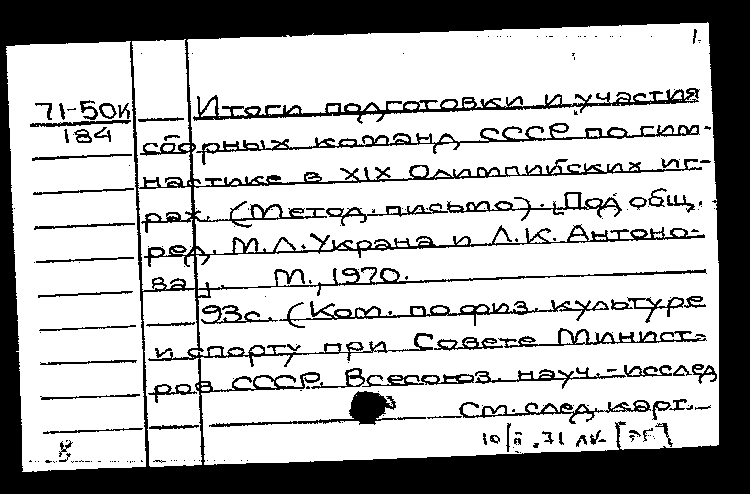 1.
71-50к
184
Итоги подготовки и участия
сборных команд СССР по гим-
настике в XIX Олимпийских иг-
рах. (Метод. письмо). [Под общ.
ред. М.Л. Украна и Л.К. Антоно-
ва]. М., 1970.
93с. (Ком. по физ. культуре
и спорту при Совете Минист-
ров СССР. Всесоюз. науч.-исслед
См. след. карт.
8
10/II.71 ЛК